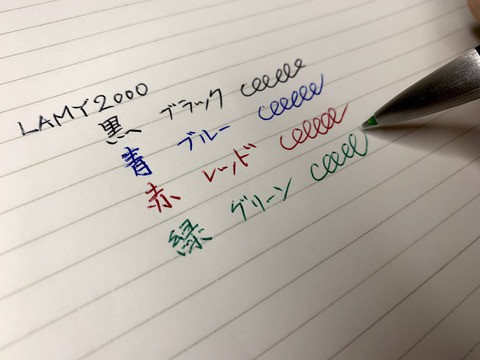 LAMY2000
黒 ブラック
青 ブルー
赤 レッド
緑 グリーン